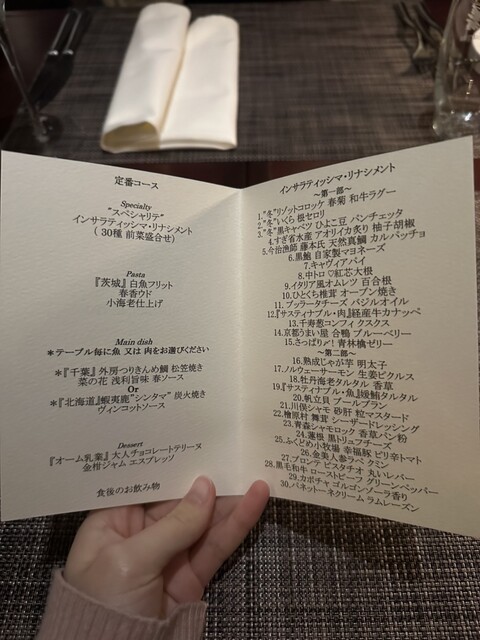 定番コース
Specialty
"スペシャリテ"
インサラティッシマ・リナシメント
( 30種 前菜盛合せ)
Pasta
『茨城』白魚フリット
春香ウド
小海老仕上げ
Main dish
*テーブル毎に魚 又は 肉をお選びください
*『千葉』外房つりきんめ鯛 松笠焼き
菜の花 浅利旨味 春ソース
Or
*『北海道』蝦夷鹿"シンタマ" 炭火焼き
ヴィンコットソース
Dessert
『オーム乳業』大人チョコレートテリーヌ
金柑ジャム エスプレッソ
食後のお飲み物
インサラティッシマ・リナシメント
～第一部～
1."冬"リゾットコロッケ 春菊 和牛ラグー
2."冬"いくら 根セロリ
3."冬"黒キャベツ ひよこ豆 パンチェッタ
4.すぎ省水産 アオリイカ炙り 柚子胡椒
5.今治漁師 藤本氏 天然真鯛 カルパッチョ
6.黒鮑 自家製マヨネーズ
7.キャヴィアパイ
8.中トロ♡紅芯大根
9.イタリア風オムレツ 百合根
10.ひとくち椎茸 オーブン焼き
11.ブッラータチーズ バジルオイル
12.『サスティナブル・肉』経産牛カナッペ
13.千寿葱コンフィ クスクス
14.京都うまい屋 合鴨 ブルーベリー
15.さっぱり〆! 青林檎ゼリー
～第二部～
16.熟成じゃが芋 明太子
17.ノルウェーサーモン 生姜ピクルス
18.牡丹海老タルタル 香草
19.『サスティナブル・魚』鰆タルタル
20.帆立貝 ブールブラン
21.川俣シャモ 砂肝 粒マスタード
22.檜原村 舞茸 シーザードレッシング
23.青森シャモロック 香草パン粉
24.蓮根 黒トリュフチーズ
25.ふくどめ小牧場 幸福豚 ピリ辛トマト
26.金美人参ラペ クミン
27.ブロンテ ピスタチオ 丸いレバー
28.黒毛和牛 ローストビーフ グリーンペッパー
29.カボチャ ゴルゴンゾーラ香り
30.パネットーネクリーム ラムレーズン